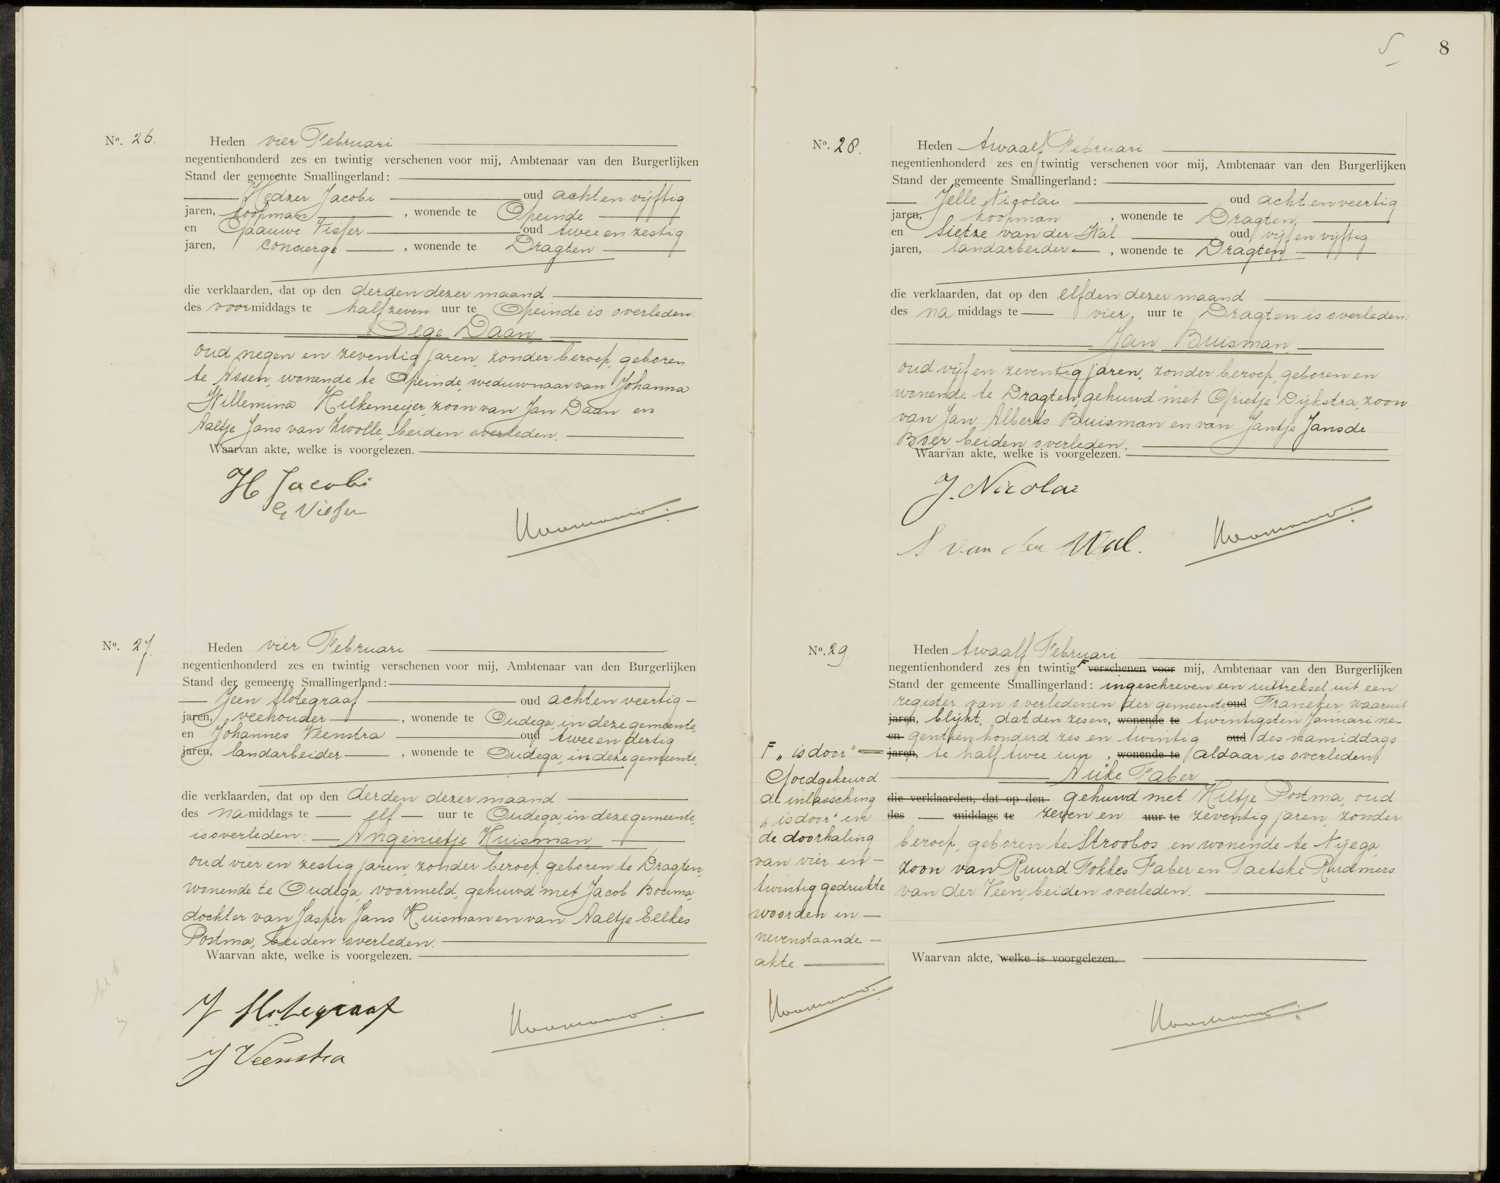 8
Nº. 26.
Heden vier Februari
negentienhonderd zes en twintig verschenen voor mij, Ambtenaar van den Burgerlijken
Stand der gemeente Smallingerland:
Hedzer Jacobi oud acht en vijftig
jaren, koopman, wonende te Opeinde
en Gaauwe Visser oud twee en zestig
jaren, concierge, wonende te Dragten
die verklaarden, dat op den derden dezer maand
des voormiddags te half zeven uur te Opeinde is overleden
Sege Daan,
oud negen en zeventig jaren, zonder beroep, geboren
te Assen, wonende te Opeinde, weduwnaar van Johanna
Willemina Hilkemeijer, zoon van Jan Daan en
Aaltje Jans van Zwolle, beiden overleden.
Waarvan akte, welke is voorgelezen.
H Jacobi
G Visser
Nº. 27
Heden vier Februari
negentienhonderd zes en twintig verschenen voor mij, Ambtenaar van den Burgerlijken
Stand der gemeente Smallingerland:
Jeen Slotegraaf oud acht en veertig
jaren, veehouder, wonende te Oudega, in deze gemeente,
en Johannes Veenstra oud twee en dertig
jaren, landarbeider, wonende te Oudega, in deze gemeente,
die verklaarden, dat op den derden dezer maand
des namiddags te elf uur te Oudega, in deze gemeente,
is overleden: Angenietje Huisman,
oud vier en zestig jaren, zonder beroep, geboren te Dragten,
wonende te Oudega, voormeld, gehuwd met Jacob Bouma,
dochter van Jasper Jans Huisman en van Aaltje Eelkes
Postma, beiden overleden.
Waarvan akte, welke is voorgelezen.
J Slotegraaf
J Veenstra
Nº. 28.
Heden twaalf Februari
negentienhonderd zes en twintig verschenen voor mij, Ambtenaar van den Burgerlijken
Stand der gemeente Smallingerland:
Jelle Nicolai oud acht en veertig
jaren, koopman, wonende te Dragten,
en Sietze van der Wal oud vijf en vijftig
jaren, landarbeider, wonende te Dragten,
die verklaarden, dat op den elfden dezer maand
des namiddags te vier uur te Dragten is overleden:
Jan Buisman,
oud vijf en zeventig jaren, zonder beroep, geboren en
wonende te Dragten, gehuwd met Grietje Dijkstra, zoon
van Jan Alberts Buisman en van Jantje Jans de
Boer beiden overleden.
Waarvan akte, welke is voorgelezen.
J. Nicolai
S van der Wal.
Nº. 29
Heden twaalf Februari
negentienhonderd zes en twintig F verschenen voor mij, Ambtenaar van den Burgerlijken
Stand der gemeente Smallingerland: ingeschreven een uittreksel uit een
register van overledenen der gemeente oud Franeker, waaruit
jaren, blijkt, dat den zesen, wonende te twintigsten Januari ne-
en gentienhonderd zes en twintig oud des namiddags
jaren, te half twee uur, wonende te aldaar is overleden,
Auke Faber
die verklaarden, dat op den gehuwd met Hiltje Postma, oud
des middags te zeven en uur te zeventig jaren, zonder
beroep, geboren te Stroobos en wonende te Nijega,
zoon van Ruurd Fokkes Faber en Taetske Ruidmers
van der Veen, beiden overleden.
Waarvan akte, welke is voorgelezen.
F „is door"
Goedgekeurd
de inlassching
„is door" en
de doorhaling
van vier en
twintig gedrukte
woorden in
nevenstaande
akte